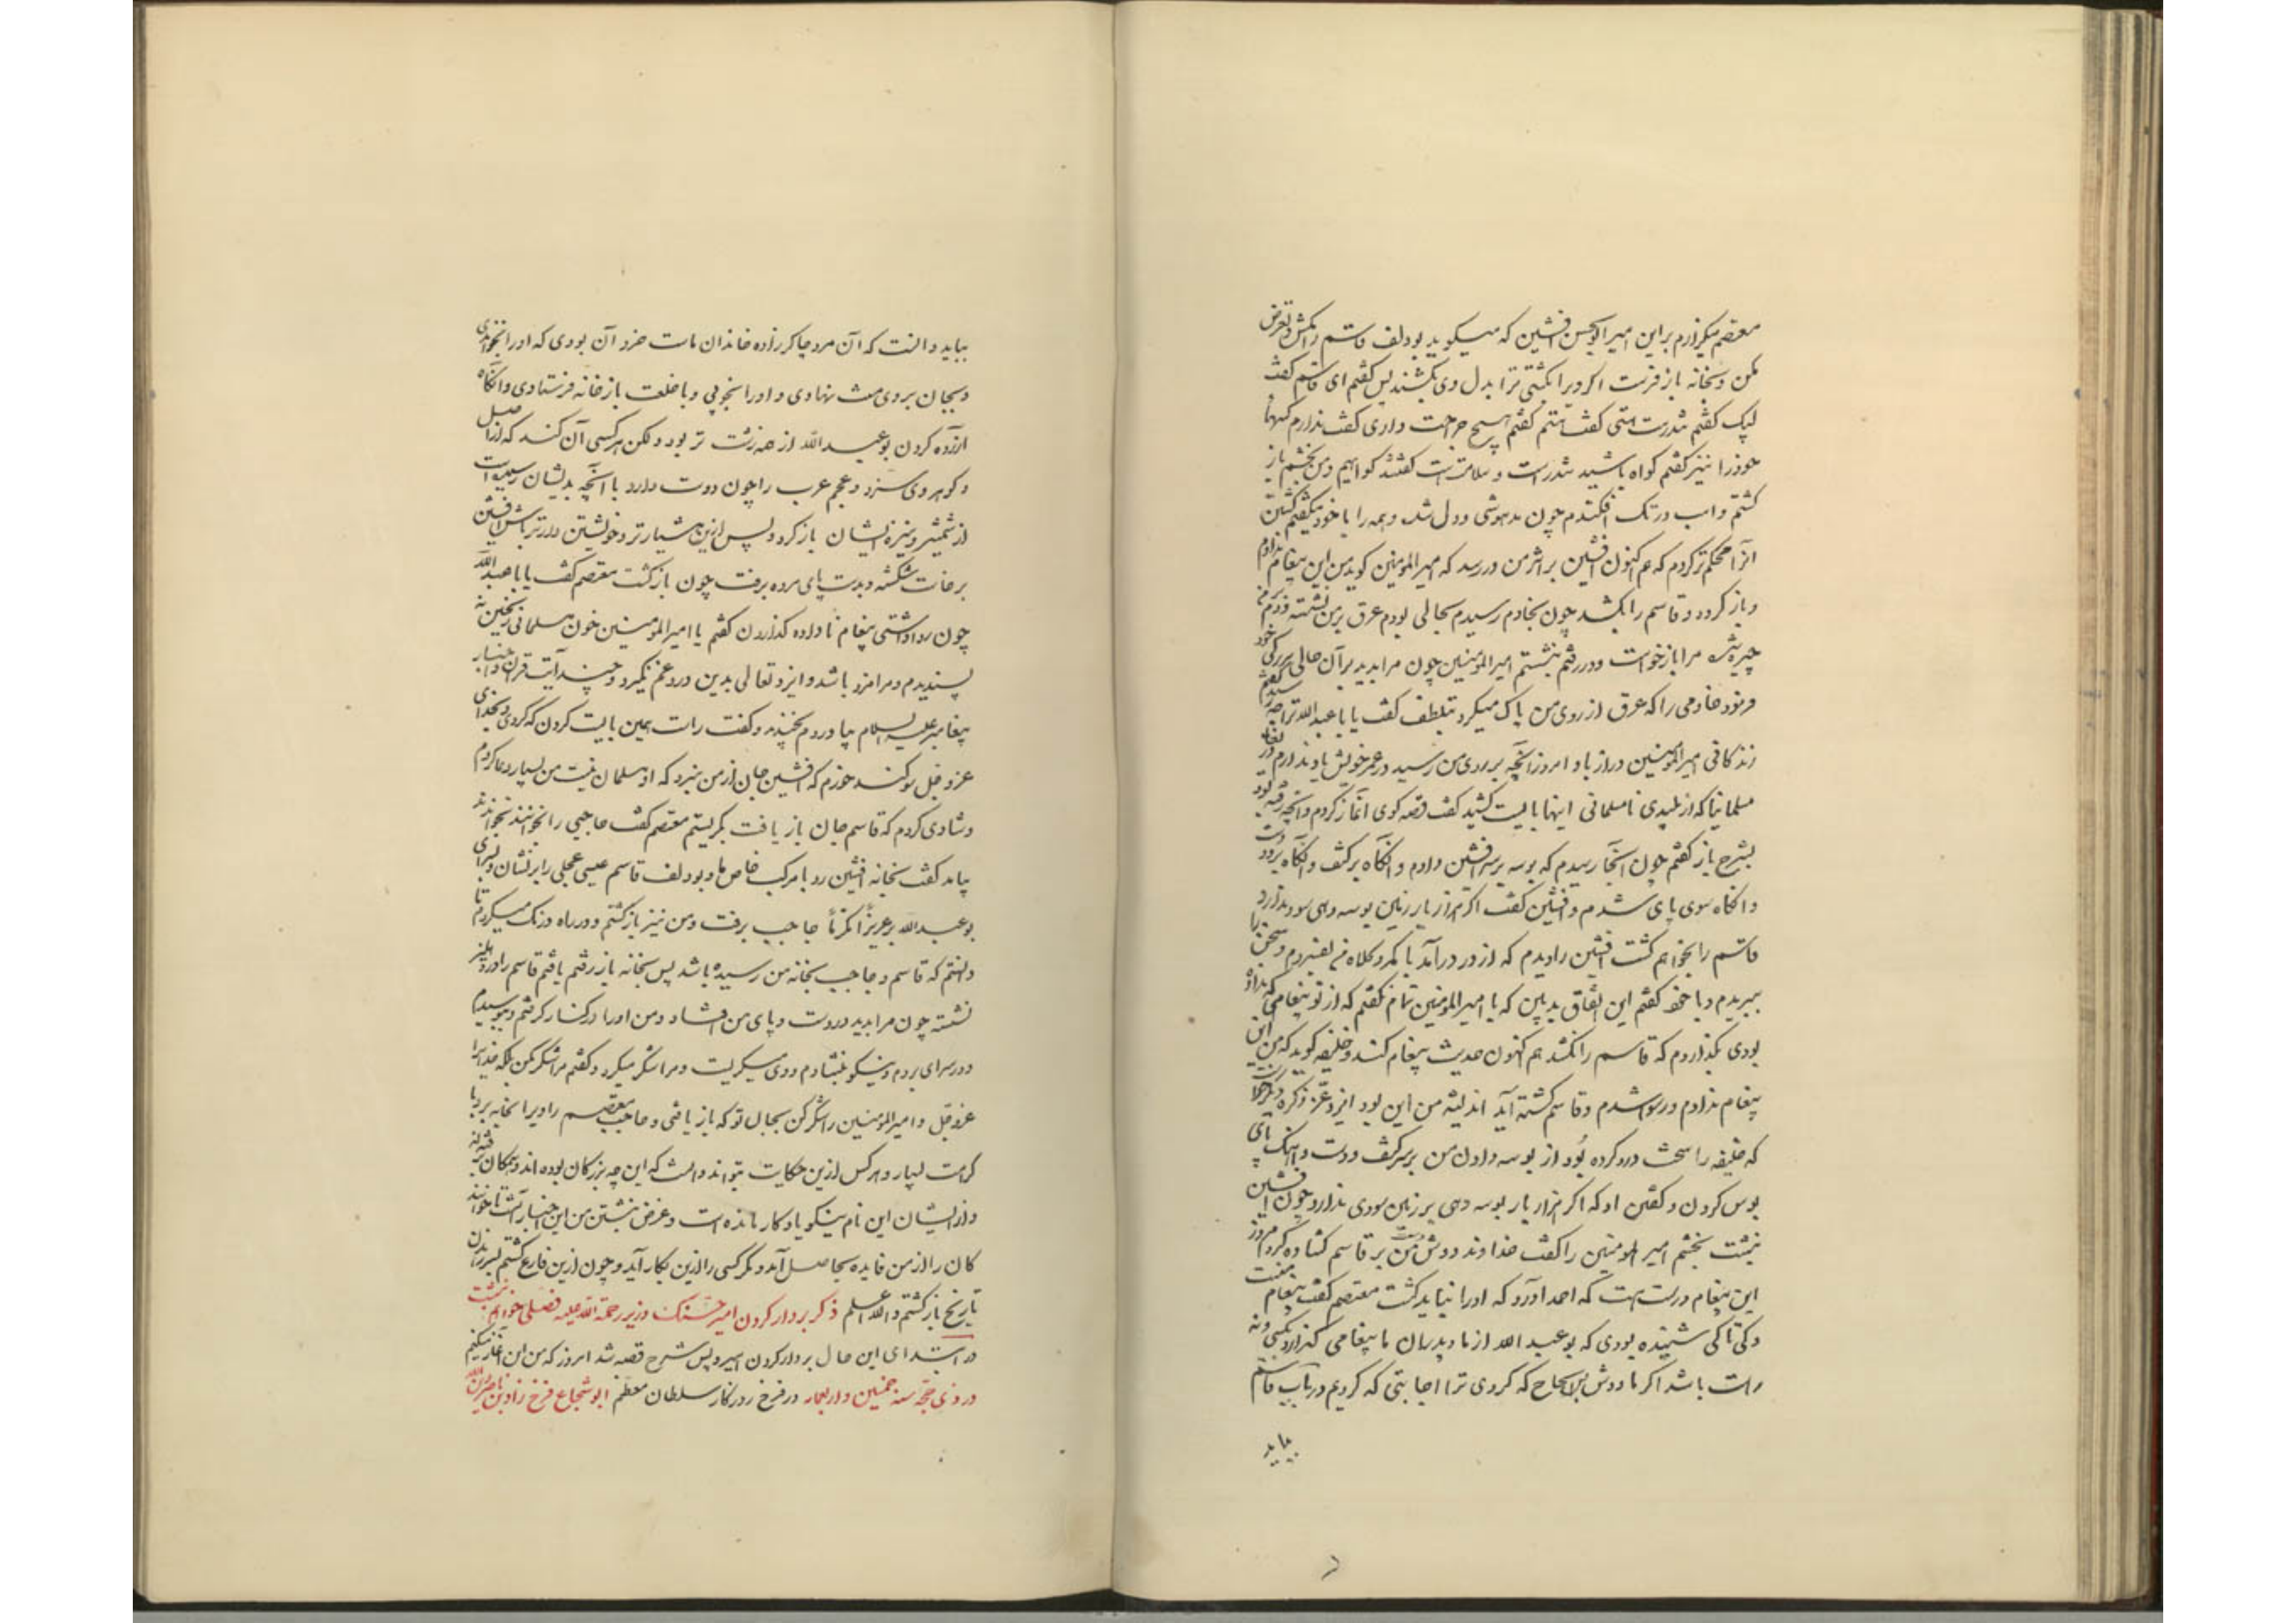 معتصم میگزارم براین امیر ابوالحسن افشین که میگوید بودلف قاسم را مکش و تعرض
مکن و بخانه باز فرست اگر ویرا بکشتی ترا بدل وی بکشند پس گفتم ای قاسم گفت
لبیک گفتم تندرست هستی گفت هستم گفتم هیچ جراحت داری گفت ندارم کسهای
خود را نیز گفتم گواه باشید تندرست و سلامتست گفتند گواهیم و من بخشم باز
گشتم و اسب در تک افکندم چون مدهوشی و دل شده و همه راه با خود میگفتم کشتن
انرا محکم تر کردم که هم اکنون افشین بر اثر من در رسد که امیرالمومنین گوید من این پیغام ندادم
و باز گردد و قاسم را بکشد چون بخادم رسیدم بحالی بودم عرق بر من نشسته و دم بر من
چیره شده مرا بازخواست و در رفتم بنشستم امیرالمومنین چون مرا بدید برآن حالی بزرگی خود
فرمود خادمی را که عرق از روی من پاک میکرد بتلطف گفت یا باعبدالله ترا چه رسید گفتم
زندگانی امیرالمومنین دراز باد امروز آنچه بر روی من رسید در عمر خویش یاد ندارم دریغا
مسلمانیا که از پلیدی نامسلمانی اینها بایست کشید گفت قصه گوی آغاز کردم و آنچه رفته بود
بشرح باز گفتم چون آنجا رسیدم که بوسه بر سر افشین دادم و آنگاه بر کتف و آنگاه بر دو دست
و آنگاه سوی پای شدم و افشین گفت اگر هزار بار زمین بوسه دهی سود ندارد
قاسم را بخواهم کشت افشین را دیدم که از در درآمد با کمر و کلاه من بفسردم و سخن را
ببریدم و با خود گفتم این اتفاق بد بین که با امیرالمومنین تمام نگفتم که از تو پیغامی که نداده
بودی بگذاردم که قاسم را نکشد هم اکنون حدیث پیغام کند و خلیفه گوید که من این
پیغام ندادم و رسوا شدم و قاسم کشته آید اندیشه من این بود ایزد عز ذکره دیگر خواست
که خلیفه را سخت درد کرده بُود از بوسه دادن من بر سر کتف و دست و آهنگ پای
بوس کردن و گفتن او که اگر هزار بار بوسه دهی بر زمین سودی ندارد چون افشین
بنشست بخشم امیر المومنین را گفت خداوند دوش دست من بر قاسم گشاده کرد امروز
این پیغام درست هست که احمد آورد که او را نباید کشت معتصم گفت پیغام منست
و کی تا کی شنیده بودی که بوعبد الله از ما و پدران ما پیغامی گزارد بکسی و نه
راست باشد اگر ما دوش پس از الحاح که کردی ترا اجابتی که کردیم در باب قاسم
بباید
بباید دانست که آن مرد چاکرزاده خاندان ماست خرد آن بودی که او را بخواندی
و بجان بر وی منت نهادی و او را بخوبی و با خلعت باز خانه فرستادی و آنگاه
آزرده کردن بوعبد الله از همه زشت تر بود ولکن هر کسی آن کند که از اصل
و گوهر وی سزد و عجم عرب را چون دوست دارد با آنچه بدیشان رسیده است
از شمشیر و نیزه ایشان باز گرد و پس ازین هشیارتر و خویشتن دارتر باش افشین
برخاست شکسته و بدست پای مرده برفت چون بازگشت معتصم گفت یا باعبدالله
چون روا داشتی پیغام ناداده گذاردن گفتم یا امیرالمومنین خون مسلمانی ریختن نه
پسندیدم و مرا مزد باشد و ایزد تعالی بدین دروغم نگیرد و چند آیت قران و اخبار
پیغامبر علیه السلام بیاوردم بخندید و گفت راست همین بایست کردن که کردی و بخدای
عز و جل سوگند خورم که افشین جان از من نبرد که او مسلمان نیست من بسیار دعا کردم
و شادی کردم که قاسم جان باز یافت بگریستم معتصم گفت حاجبی را بخوانند بخواندند
بیامد گفت بخانه افشین رو با مرکب خاص ما و بودلف قاسم عیسی عجلی را برنشان و بسرای
بوعبدالله بر عزیزاً مکرماً حاجب برفت و من نیز بازگشتم و در راه درنگ میکردم تا
دانستم که قاسم و حاجب بخانه من رسیده باشد پس بخانه باز رفتم یافتم قاسم را در دهلیز
نشسته چون مرا بدید در دست و پای من افتاد و من او را در کنار گرفتم و ببوسیدم
و در سرای بردم و نیکو بنشادم و وی میگریست و مرا شکر میکرد گفتم مرا شکر مکن بلکه خدایرا
عز و جل و امیرالمومنین را شکر کن بجان تو که باز یافتی و حاجب معتصم را ویرا بخانه برد با
کرامت بسیار و هر کس ازین حکایت بتواند دانست که این چه بزرگان بوده اند و همگان برفته اند
و از ایشان این نام نیکو یادگار مانده است و غرض نبشتن من این اخبار آنست تا خوانندگان
کان را از من فایده بحاصل آید و مگر کسی را ازین بکار آید و چون ازین فارغ گشتم بسر راندن
تاریخ بازگشتم والله اعلم ذکر بردار کردن امیر حسنک وزیر رحمة الله علیه فصلی خواهم نبشت
در ابتدای این حال بردار کردن امیر و پس شرح قصه شد امروز که من این آغاز میکنم
در ذی حجه سنه خمسین و اربعمایه در فرخ روزگار سلطان معظم ابوشجاع فرخ زاد بن ناصر دین الله